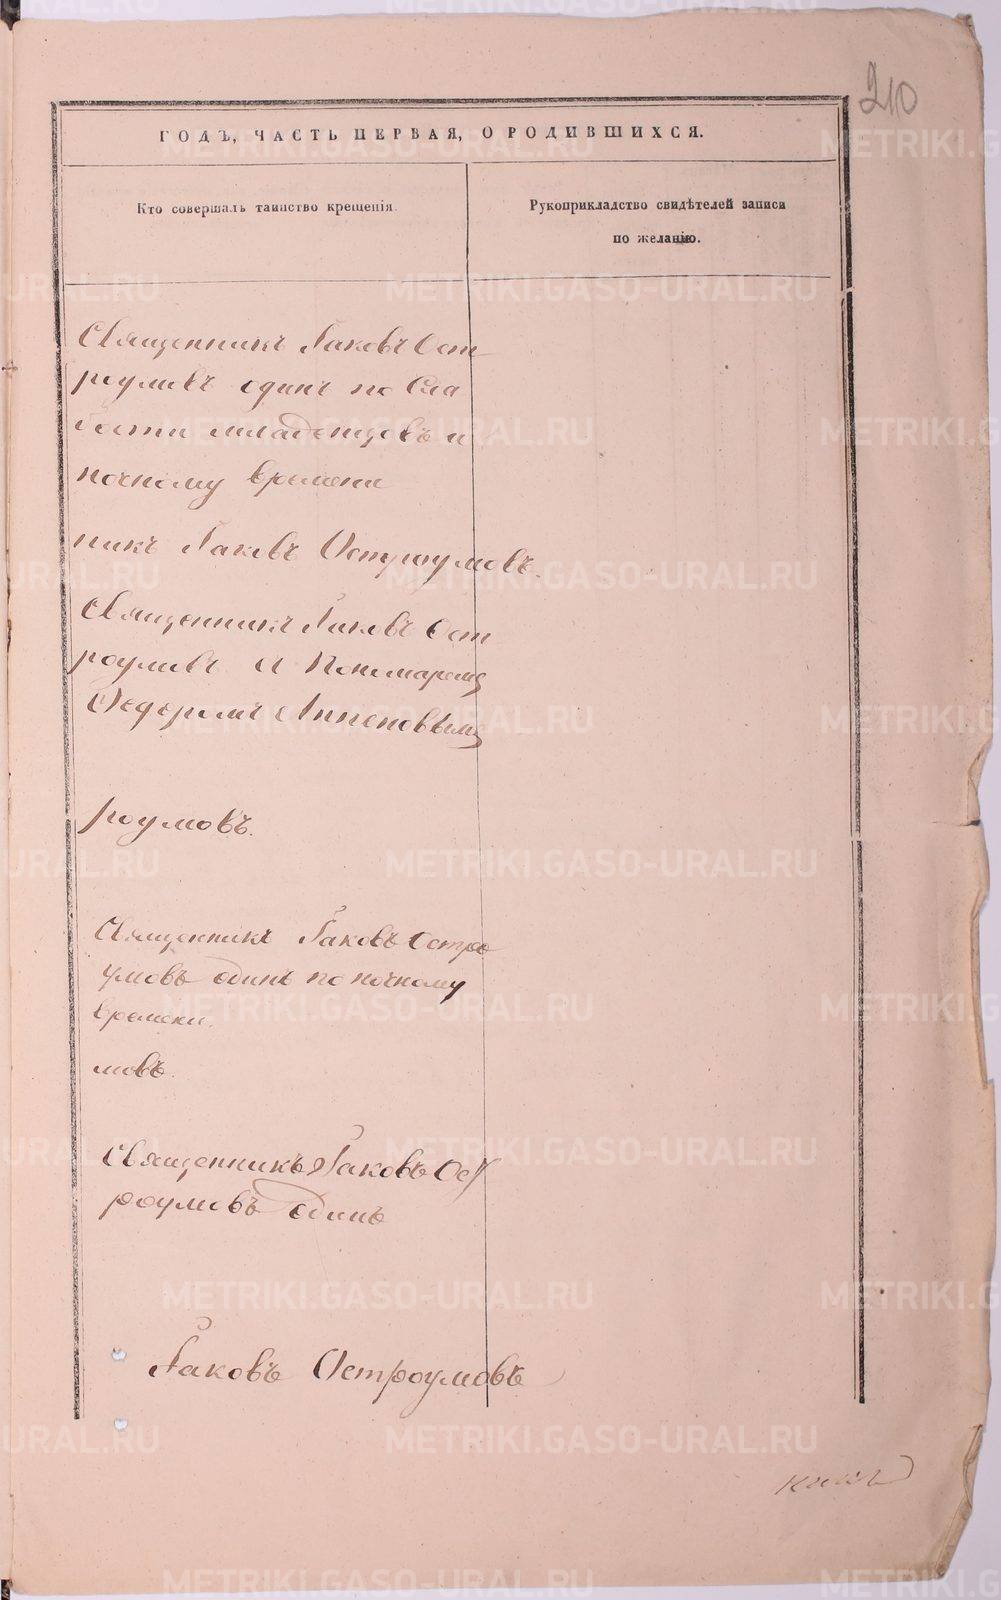 210
ГОДЪ, ЧАСТЬ ПЕРВАЯ, О РОДИВШИХСЯ.
Кто совершалъ таинство крещенія.
Рукоприкладство свидѣтелей записи
по желанію.
Священникъ Іаковъ Ост
роумовъ одинъ по сла
бости младенцовъ и
ночному времени
никъ Іаковъ Остроумовъ.
Священникъ Іаковъ Ост
роумовъ и Пономаремъ
Ѳедоромъ
роумовъ.
Священникъ Іаковъ Остро
умовъ одинъ по ночному
времени.
мовъ.
Священникъ Іаковъ Ост
роумовъ одинъ
Іаковъ Остроумовъ
METRIKI.GASO-URAL.RU